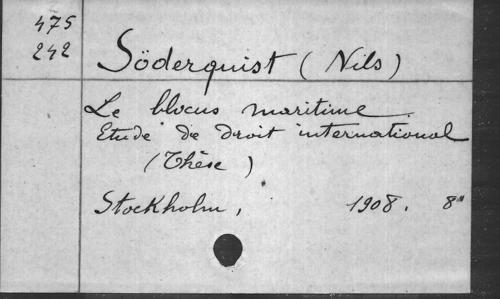 475
242
Söderquist (Nils)
Le blocus maritime.
Etude de droit international
(Thèse)
Stockholm, 1908. 8°